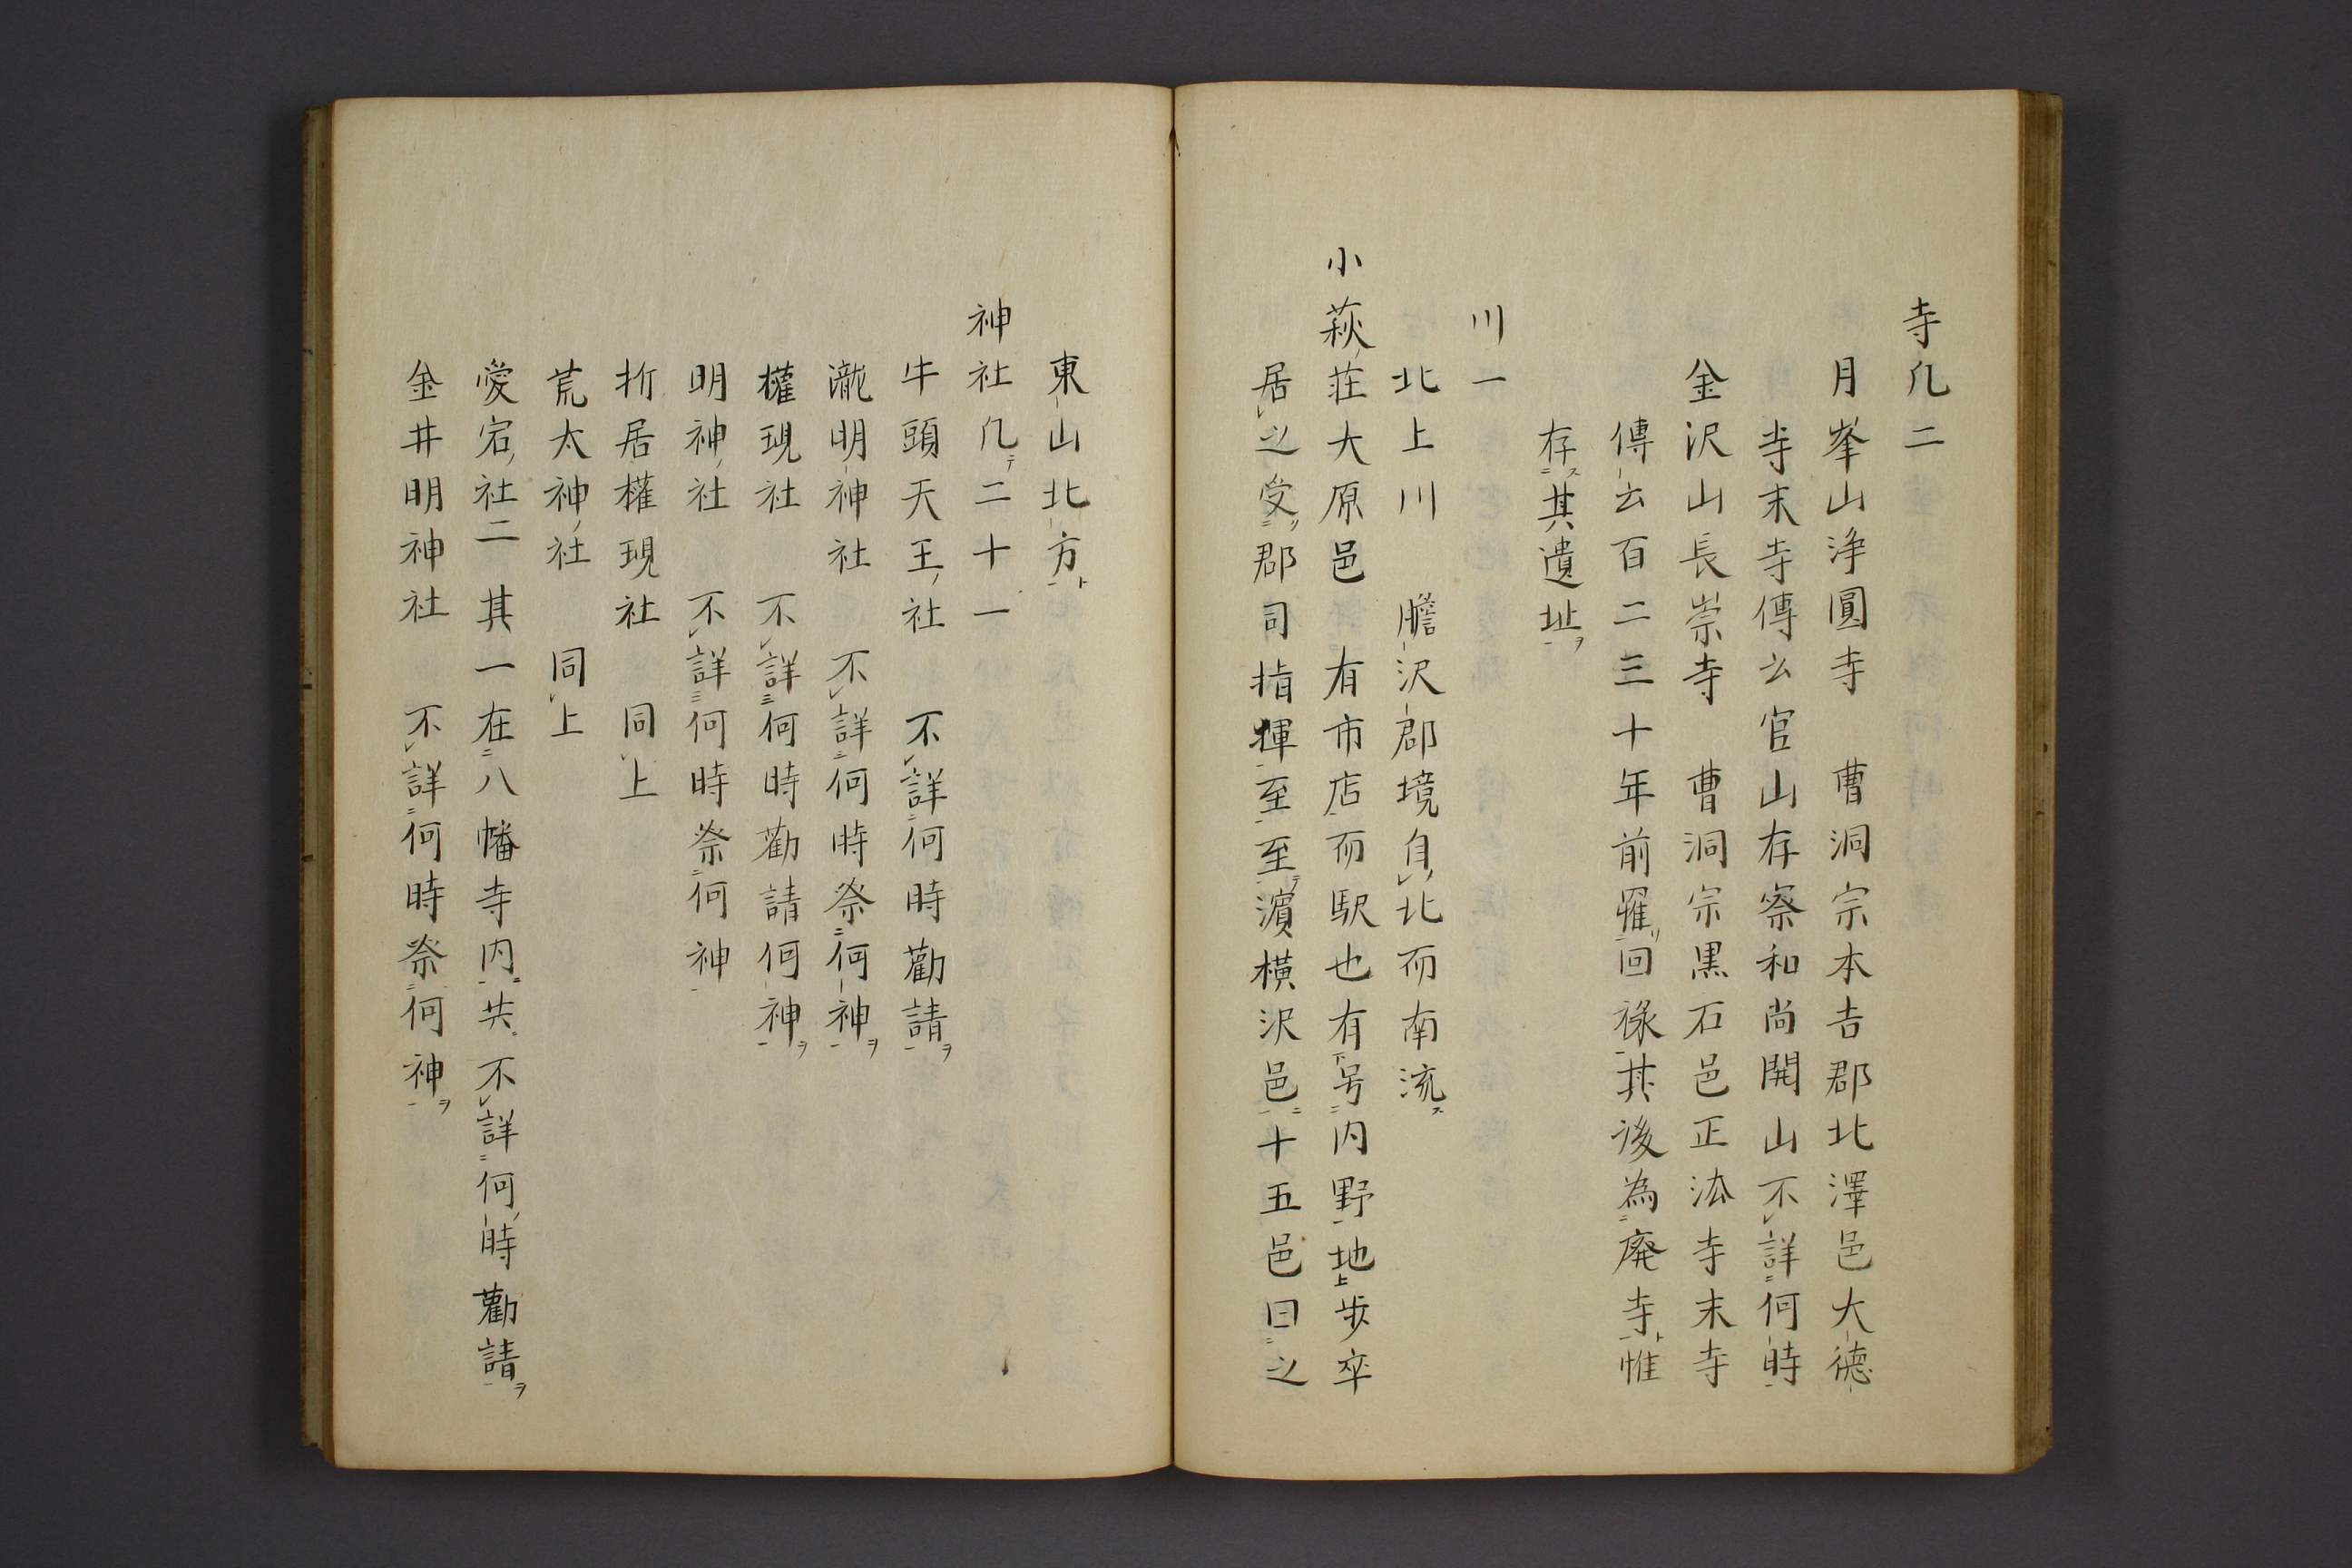 寺凡二
月峯山浄圓寺　曹洞宗本吉郡北澤邑大徳
寺末寺傳云官山存察和尚開山不詳何時
金沢山長崇寺　曹洞宗黒石邑正法寺末寺
傳云百二三十年前罹回禄其後為廃寺惟
存其遺址
川一
北上川　膽沢郡境自北而南流
小萩荘大原邑　有市店而駅也有号内野地歩卒
居之受郡司指揮至至濵横沢邑十五邑曰之
東山北方
神社凡二十一
牛頭天王社　不詳何時勸請
瀧明神社　不詳何時祭何神
權現社　不詳何時勸請何神
明神社　不詳何時祭何神
折居權現社　同上
荒太神社　同上
愛宕社二　其一在八幡寺内共不詳何時勸請
金井明神社　不詳何時祭何神